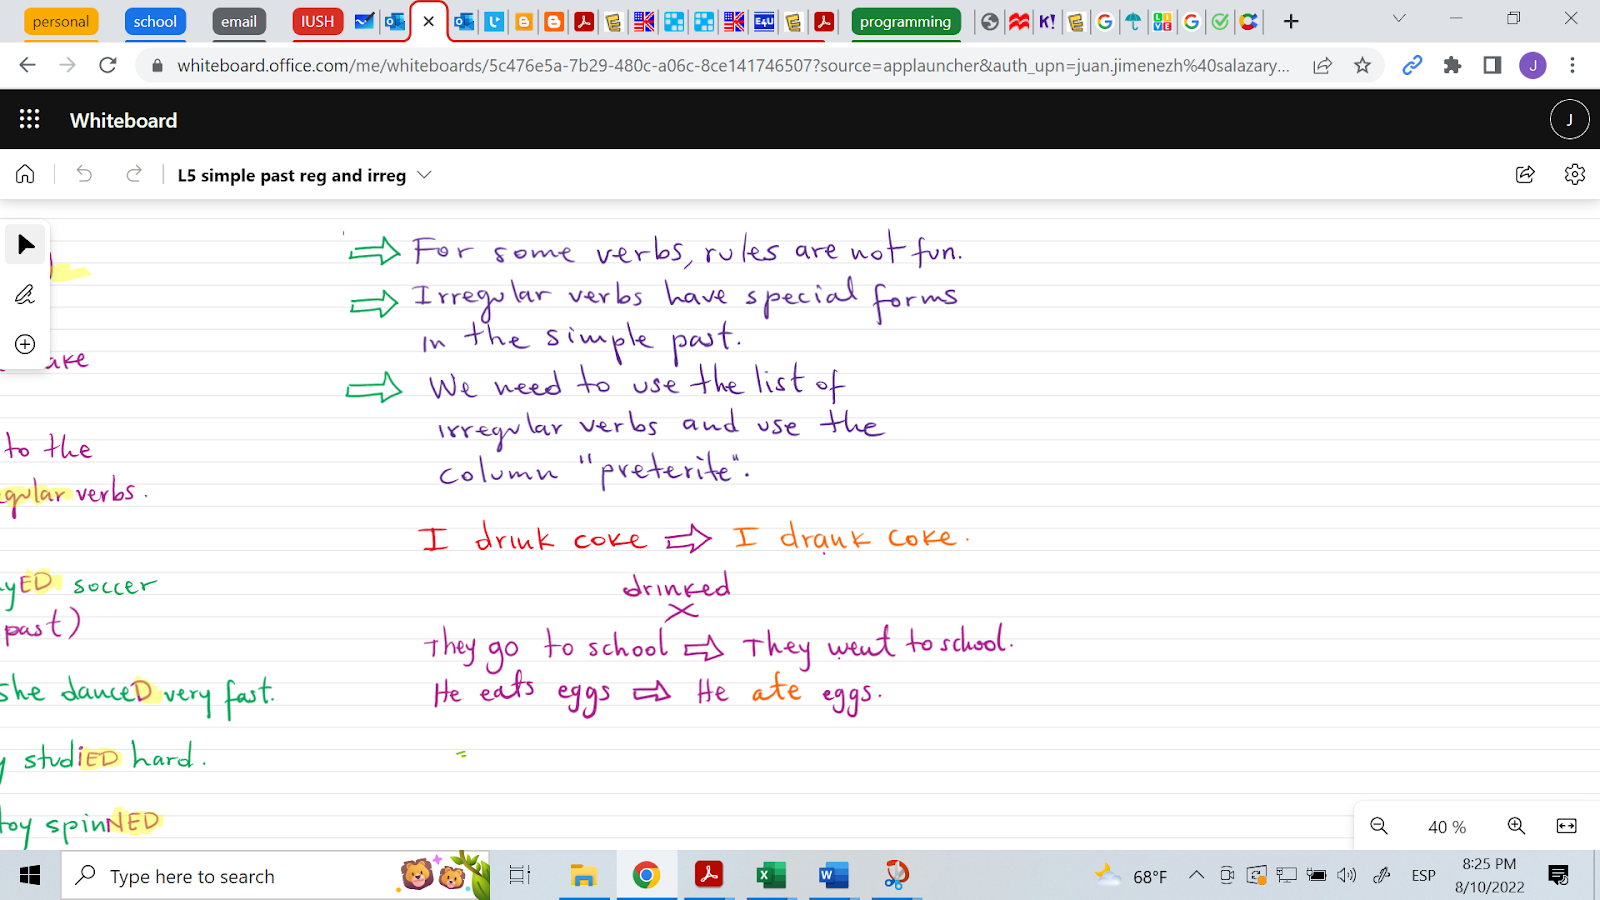 personal school email IUSH programming
whiteboard.office.com/me/whiteboards/5c476e5a-7b29-480c-a06c-8ce141746507?source=applauncher&auth_upn=juan.jimenezh%40salazary... J
Whiteboard J
L5 simple past reg and irreg
For some verbs, rules are not fun.
Irregular verbs have special forms
in the simple past.
We need to use the list of
irregular verbs and use the
column "preterite".
I drink coke ⇨ I drank coke.
drinked
X
They go to school ⇨ They went to school.
He eats eggs ⇨ He ate eggs.
ake
to the
egular verbs.
yED soccer
past)
she danceD very fast.
y studiED hard.
toy spinNED
40 %
Type here to search
68°F ESP 8:25 PM
8/10/2022